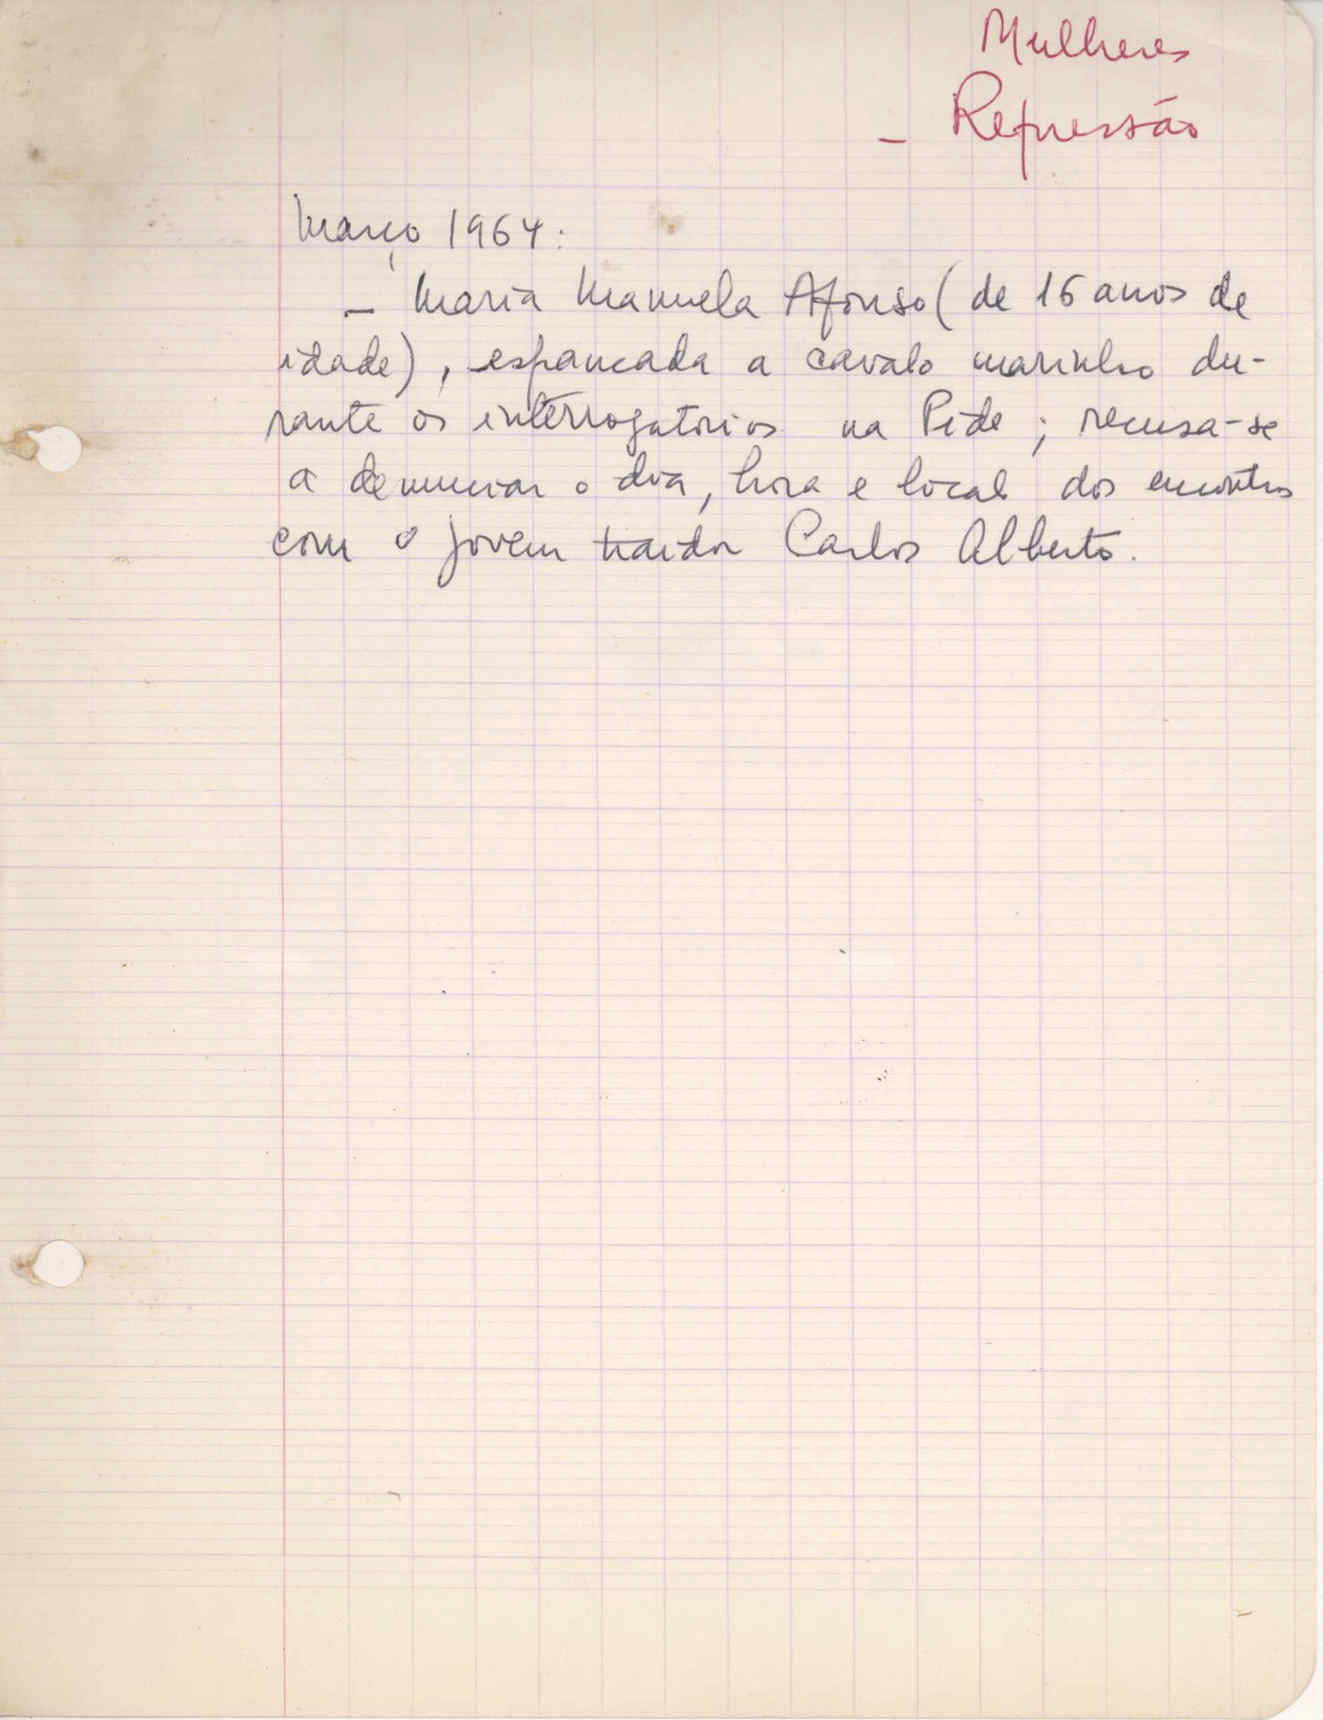 Mulheres
- Repressão
Março 1964:
- Maria Manuela Afonso (de 16 anos de
idade), espancada a cavalo marinho du-
rante os interrogatórios na Pide; recusa-se
a denunciar o dia, hora e local dos encontros
com o jovem traidor Carlos Alberto.